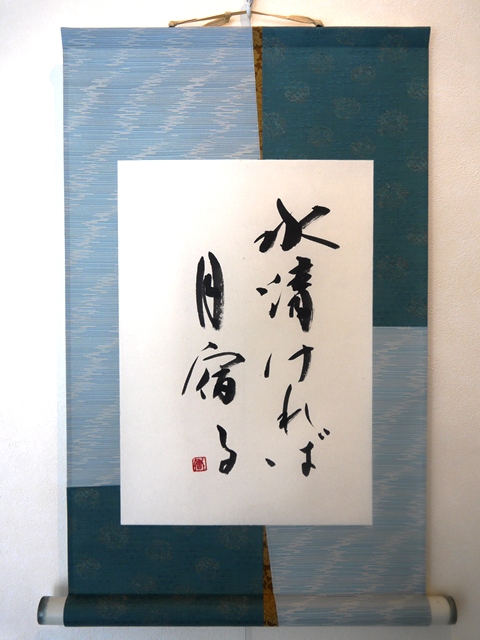 水清ければ
月宿る